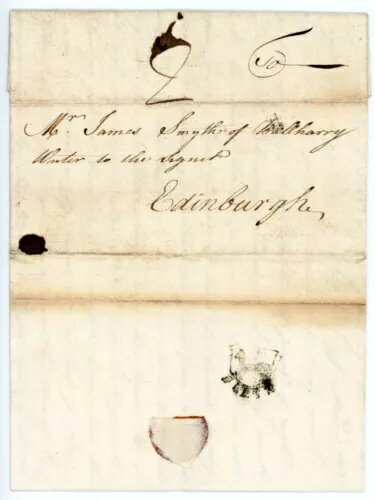 2
So
Mr. James Smyth of Balharry
Writer to the Signet
Edinburgh
PERTH